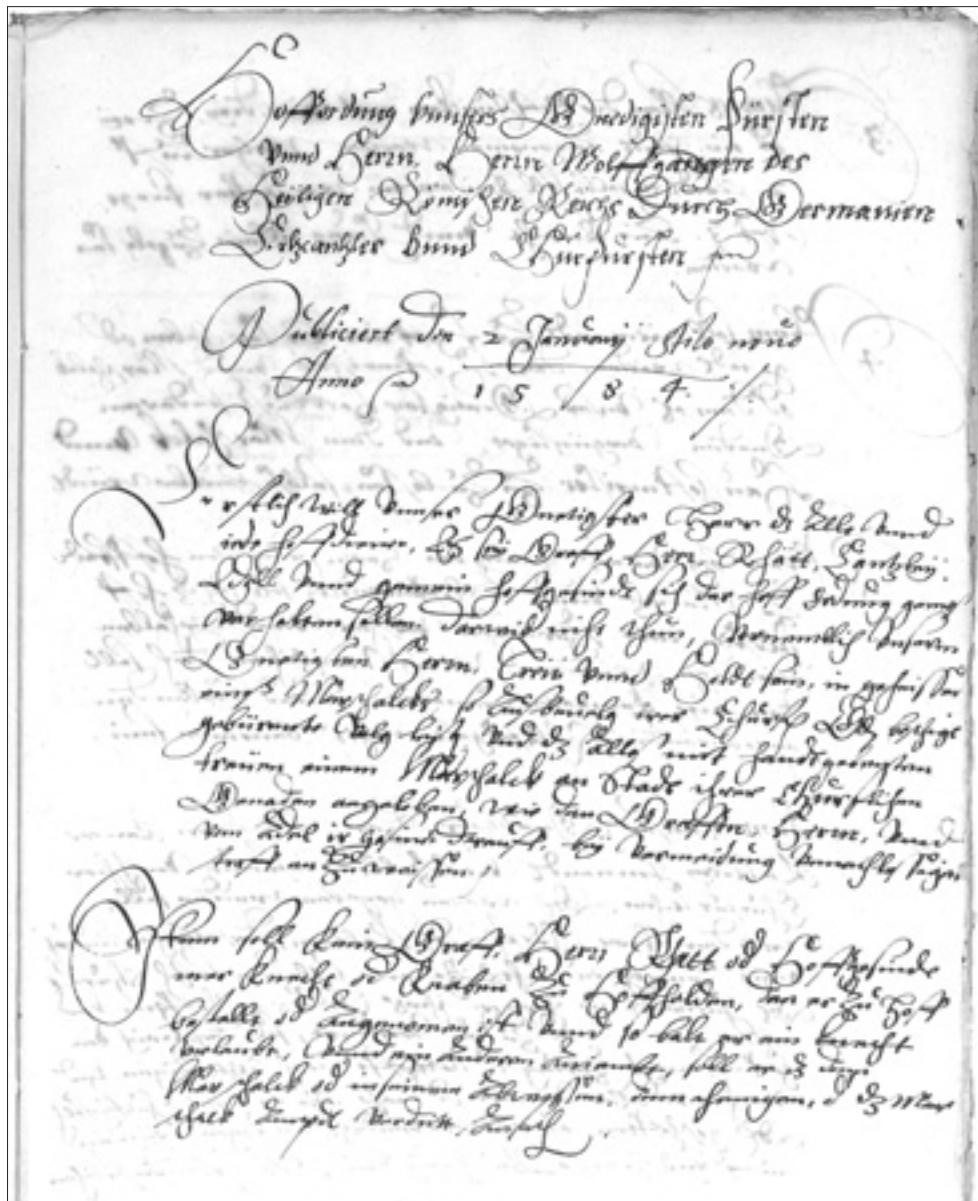 Hoffordnung vnnsers Gnedigisten Fürsten
vnnd Herrn, Herrn Wolffgangen des
Heiligen Römischen Reichs Durch Germanien
Ertzcantzler vnnd Churfürsten
Publiciert den 2 Januarij stilo nouo
Anno 1584
Erstlich will vnnser Gnedigster Herr dz alle vnnd
iede hoffdiener, Es sey Graff, Herr, Rhätt, Cantzley,
Edell vnnd gemein hoffgesindt sich der hoff ordnung gemes
verhalten sollen darwider nicht thun, vnserm
Gnedigsten Herrn, Trew vnnd Holdt sein, in
Marschalcks
vnd dz alles mit handtgegebnen
trewen einem Marschalck an Stadt ihrer Churfürstlichen
Genaden angeloben, wie den Graffen, Herrn, vnnd
vom Adel ir gesindt bey vermeidung
soll kein Graff, Herr, Rhatt od Hoffgesindt
mer knecht od Knaben zu Hoff halden, dan er zu hoff
bestelt od angenomen ist vnnd so balt er ein knecht
verlaubt, vnnd ein andern annembt, soll er
Marschalck od in seinem abwesen, dem ihenigen, dz Mar
schalck Ampt